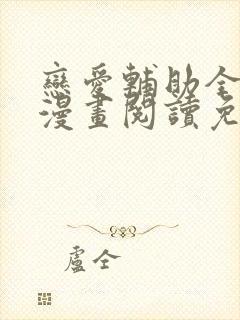 戀愛輔助全
漫畫閱讀免
盧仝